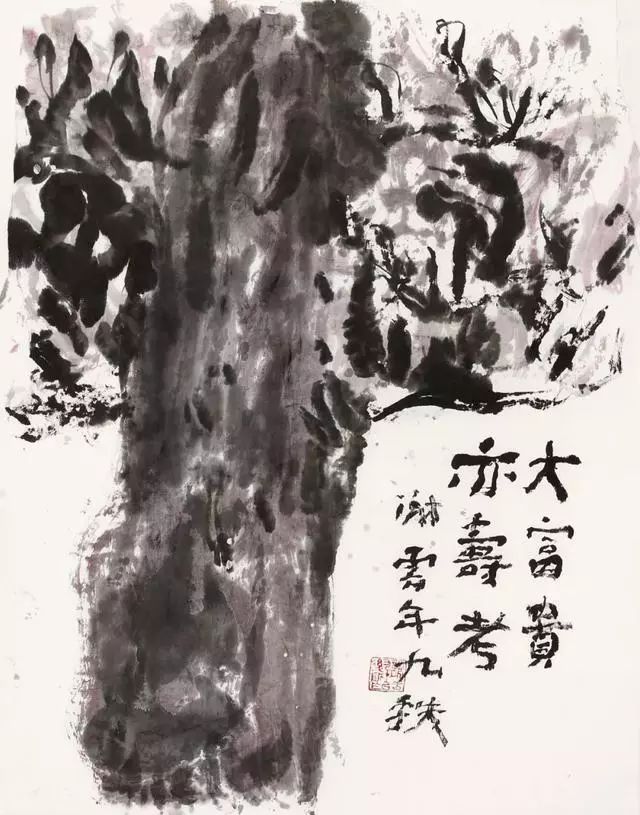 大富貴
亦壽考
谢雲年九秩